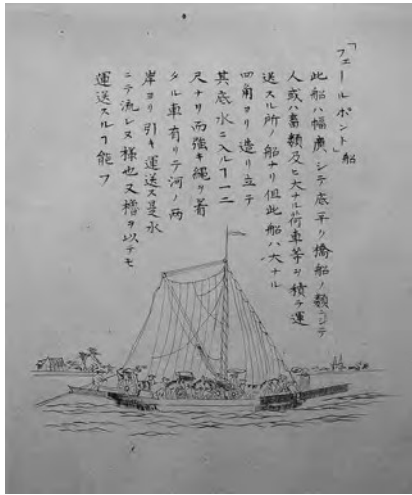 「フェールポント」船
此船ハ幅廣クシテ底平ク橋船ノ類ニシテ
人或ハ畜類及ヒ大ナル荷車等ヲ積テ運
送スル所ノ船ナリ但此船ハ大ナル
四角ヨリ造リ立テ
其底水ニ入ルヿ一二
尺ナリ而強キ縄ヲ着
タル車有リテ河ノ両
岸ヨリ引キ運送ス是水
ニテ流レヌ様也又櫓ヲ以テモ
運送スルヿ能フ